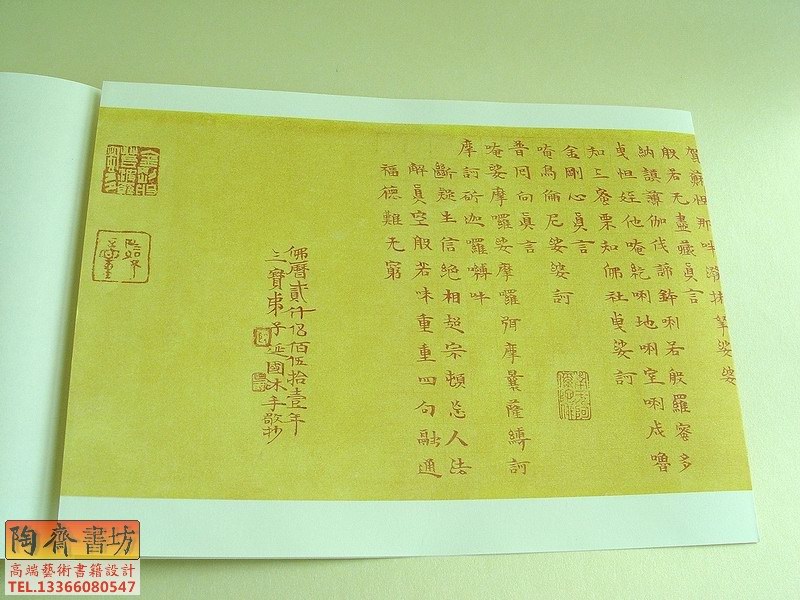 般若无盡藏真言
納謨薄伽伐諦鉢唎若般羅蜜多
曳怛姪他唵紇唎地唎室唎戍嚕
知三蜜栗知佛社曳娑訶
金剛心真言
唵烏倫尼娑婆訶
普回向真言
唵娑摩囉娑摩囉弭摩曩薩縛訶
摩訶斫迦囉嚩吽
斷疑生信絕相超宗頓忘人法
解真空般若味重重四句融通
福德難无窮
佛曆貳仟伍佰伍拾壹年
三寶弟子延國沐手敬抄
陶齋書坊
高端藝術書籍設計
TEL.13366080547